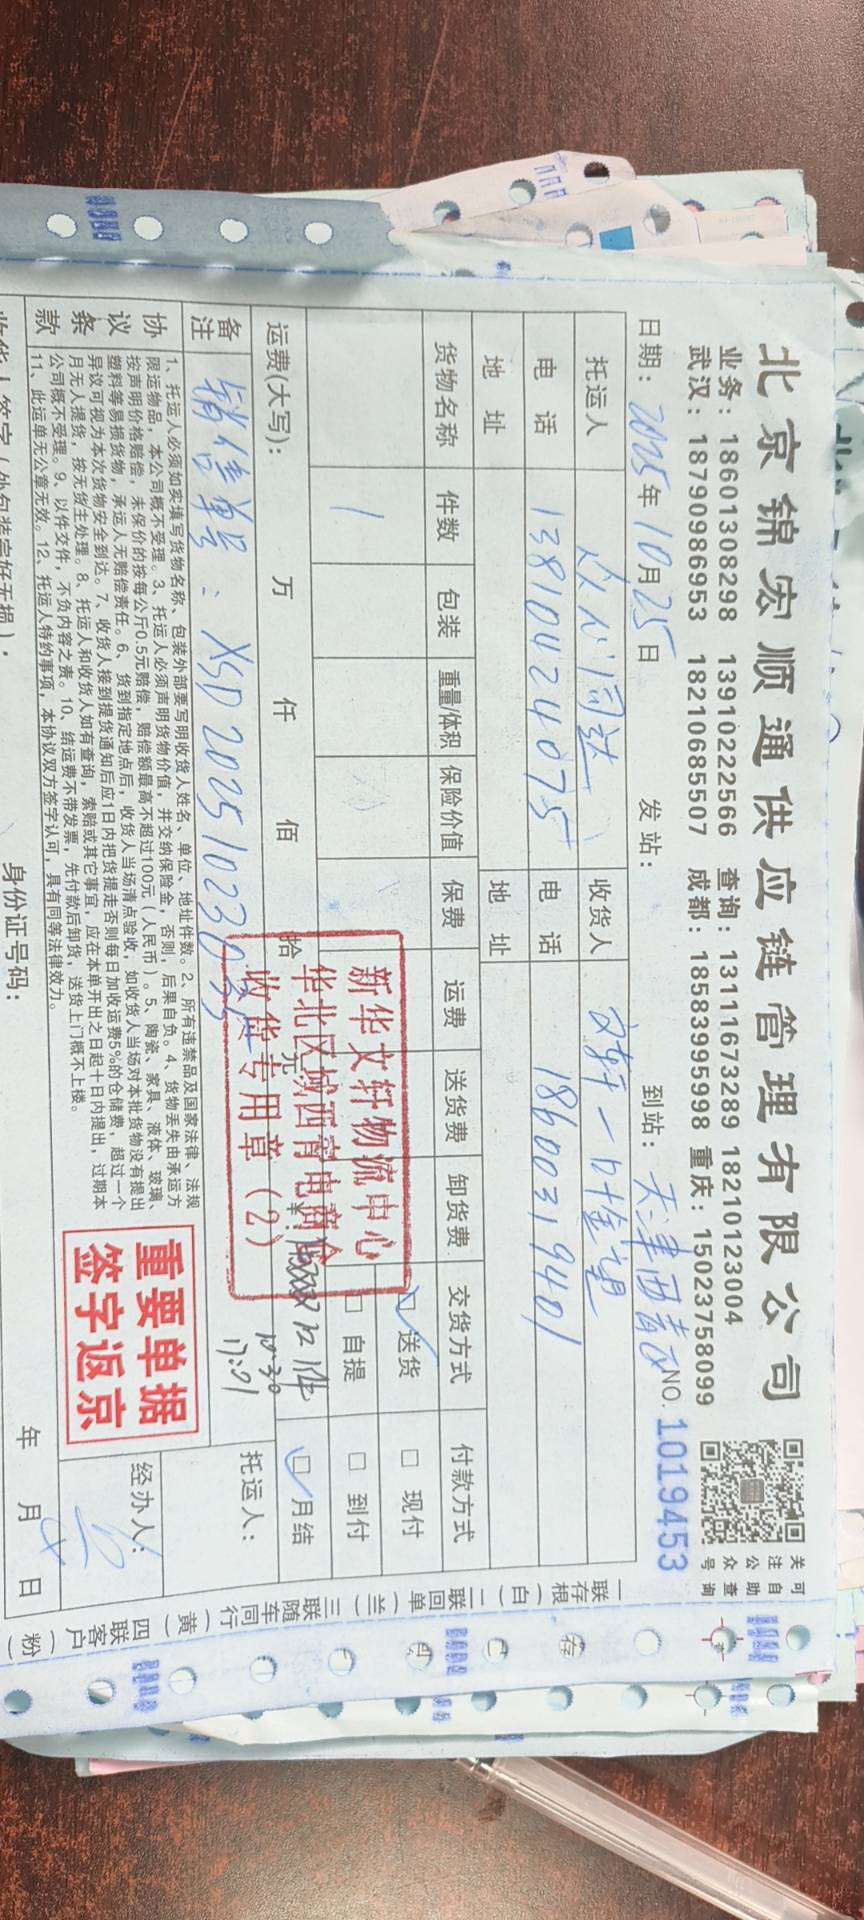 北京锦宏顺通供应链管理有限公司
业务：18601308298 13910222566 查询：13111673289 18210123004
武汉：18790986953 18210685507 成都：18583995998 重庆：15023758099
关注公众号
可自助查询
日期：2025年10月25日 发站： 到站：天津西青区 NO.1019453
托运人 众心同达 收货人 文轩一日蓝望
电话 13810424075 电话 18600319401
地址 地址
货物名称 件数 包装 重量/体积 保险价值 保费 运费 送货费 卸货费 交货方式 付款方式
1 送货 现付
自提 到付
月结
运费(大写)： 万 仟 佰 拾 元
12件
10.30
17:01
托运人：
备注 销售单号：XSD20251023
新华文轩物流中心
华北区域西青电商仓
收货专用章（2）
协议条款
1、托运人必须如实填写货物名称、包装外部要写明收货人姓名、单位、地址件数。2、所有违禁品及国家法律、法规
限运物品，本公司概不受理。3、托运人必须声明货物价值，并交纳保险金，否则，后果自负。4、货物丢失由承运方
按声明价格赔偿，未保价的按每公斤0.5元赔偿，赔偿额最高不超过100元（人民币）。5、陶瓷、家具、液体、玻璃、
塑料等易损货物，承运人无赔偿责任。6、货到指定地点后，收货人当场清点验收，如收货人当场对本批货物没有提出
异议可视为本次货物安全到达。7、收货人接到提货通知后应1日内把货提走否则每日加收运费5%的仓储费，超过一个
月无人提货，按无货主处理。8、托运人和收货人如有查询，索赔或其它事宜，应在本单开出之日起十日内提出，过期本
公司概不受理。9、以件交件，不负内容之责。10、结运费不带发票，先付款后卸货，送货上门概不上楼。
11、此运单无公章无效。12、托运人特约事项，本协议双方签字认可，具有同等法律效力。
重要单据
签字返京
经办人：
收货人签字（外包装完好无损）： 身份证号码： 年 月 日
一联存根（白）二联回单（兰）三联随车同行（黄）四联客户（粉）